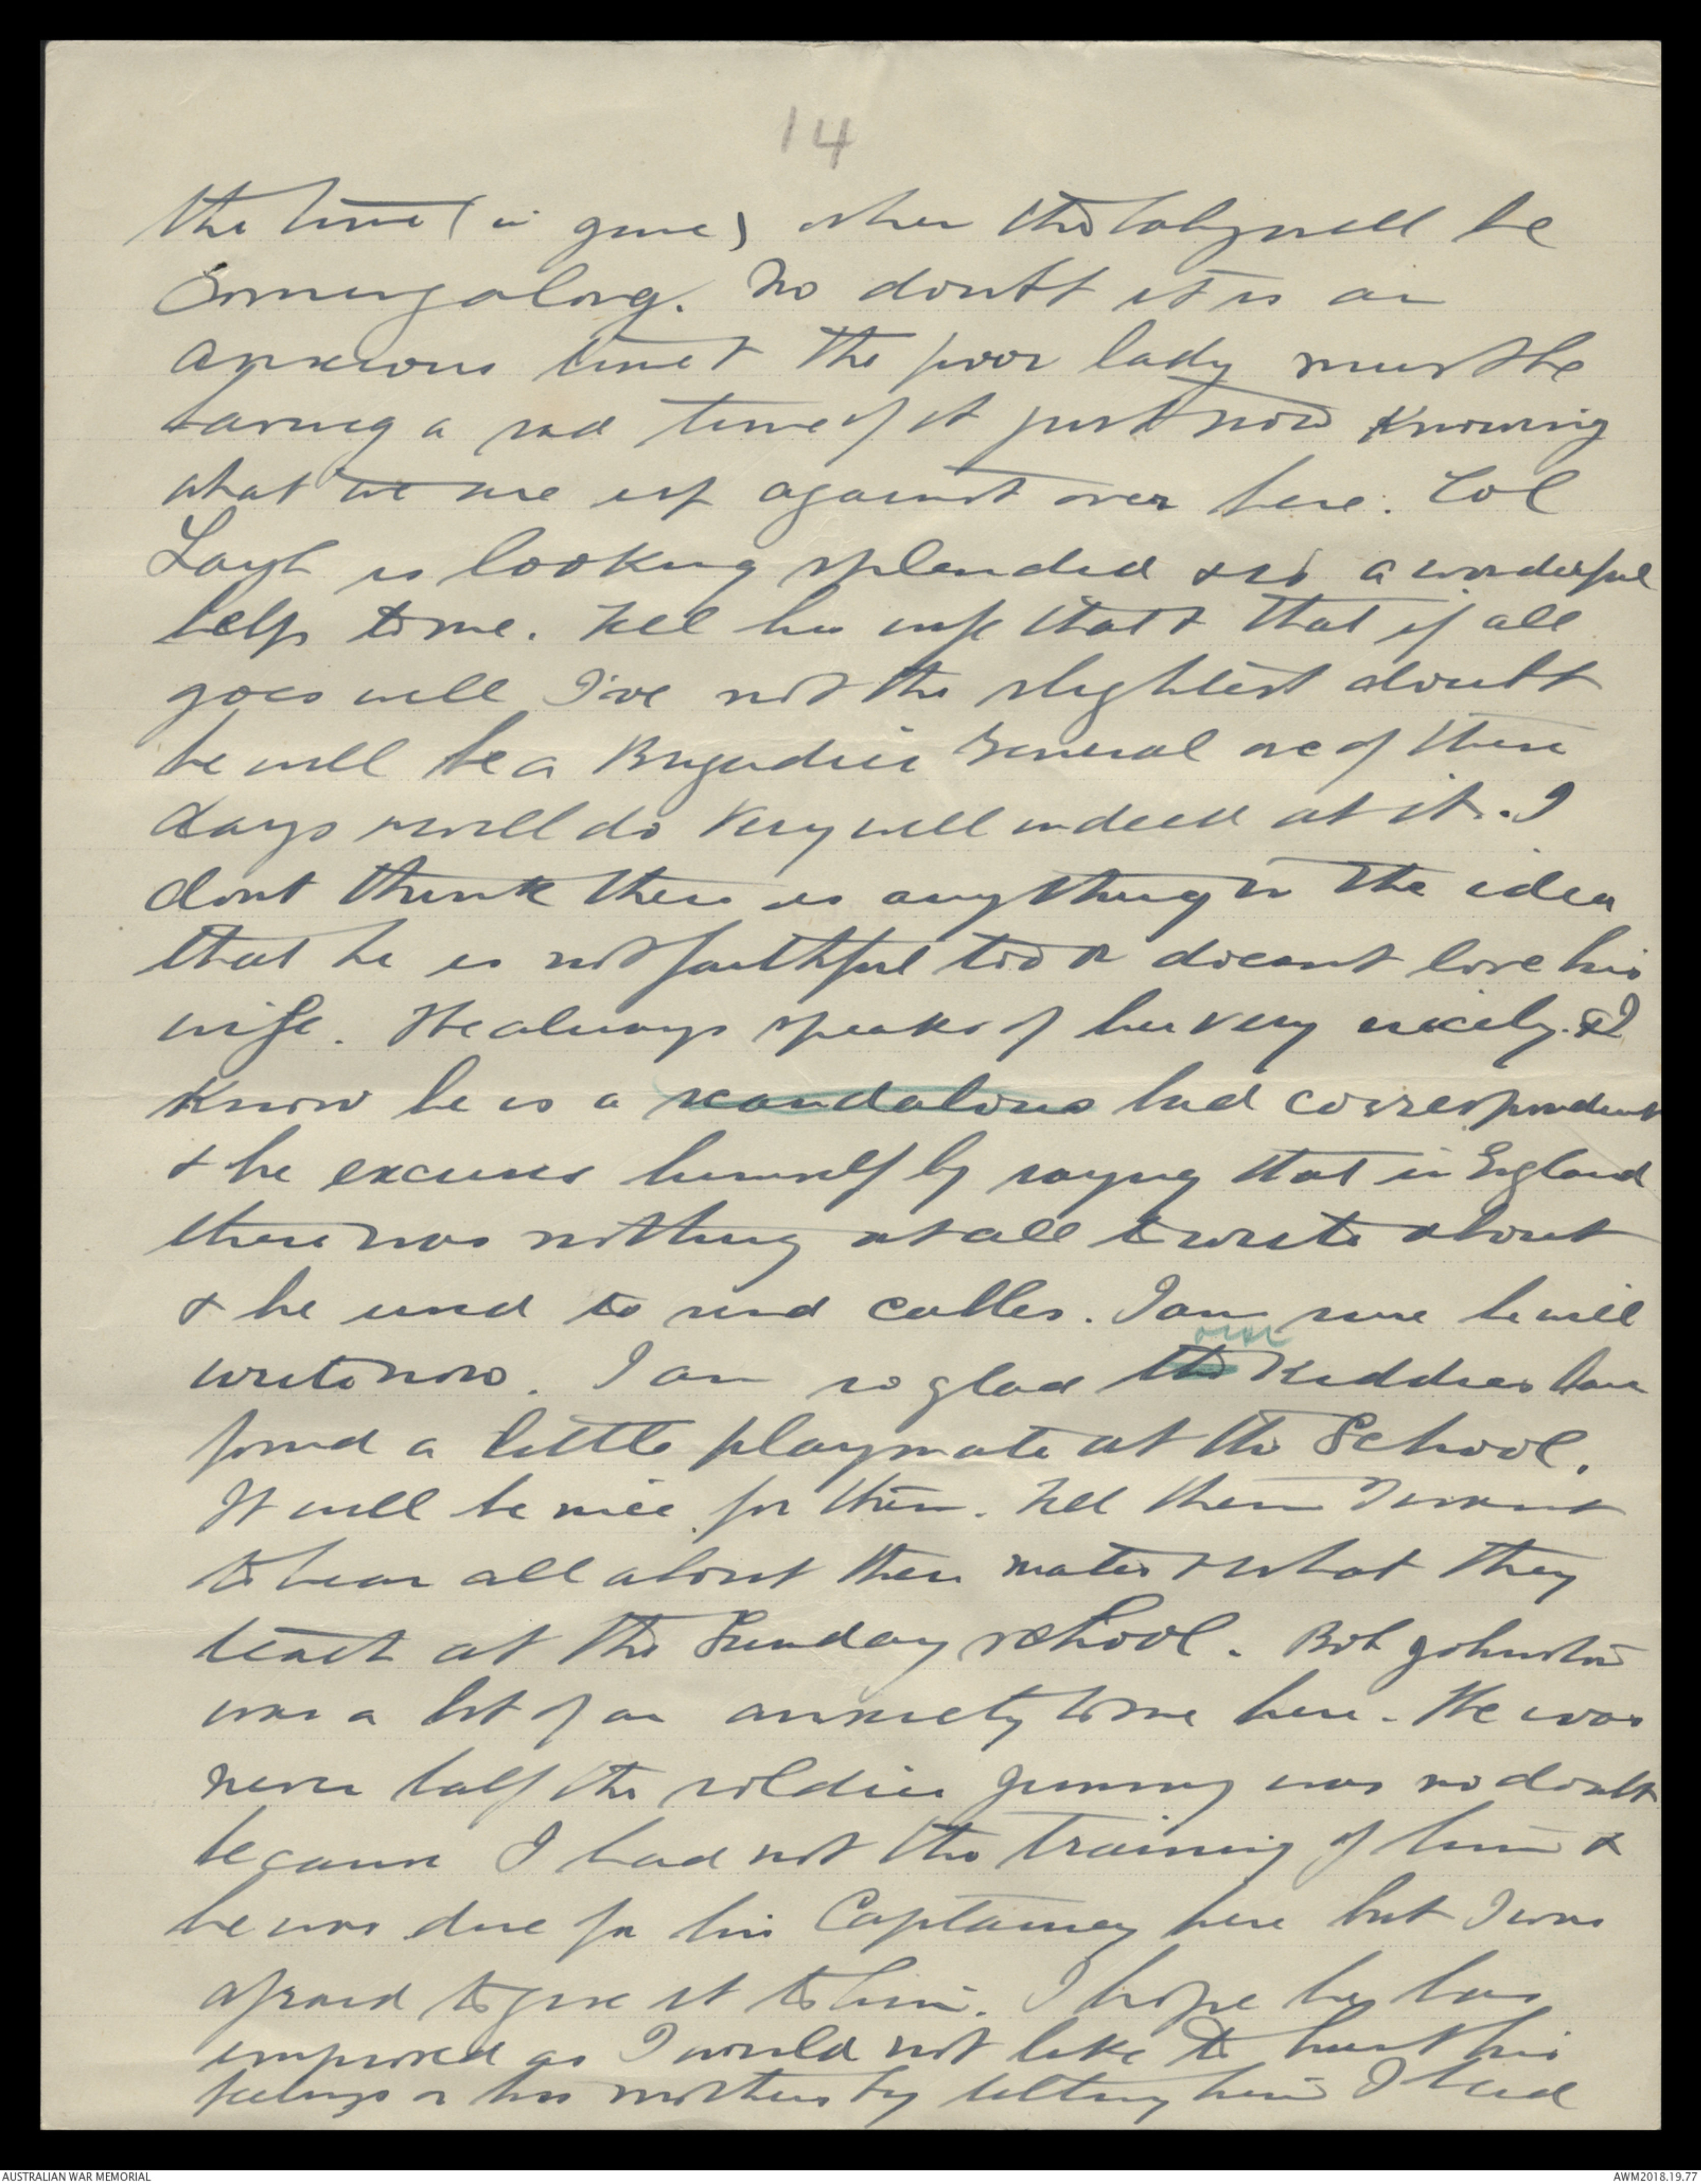 14
the time (in June) when the baby will be
Coming along. No doubt it is an
anxious time & the poor lady must be
having a bad time of it just now Knowing
what we are up against over here. Col
Layh is looking splendid & is a wonderful
help to me. Tell his wife that & that if all
goes well I've not the slightest doubt
he will be a Brigadier General one of these
days & will do very well indeed at it. I
dont think there is anything in the idea
that he is not faithful too or doesnt love his
wife. He always speaks of her very nicely. & I
Know he is a scandalous bad correspondent
& he excuses himself by saying that in England
there was nothing at all to write about
& he used to send cables. I am sure he will
write now. I am so glad the our Kiddies have
found a little playmate at the School.
It will be nice for them. Tell them I want
to hear all about their mates & what they
teach at the Sunday school. Bob Johnston
was a bit of an anxiety to me here. He was
never half the soldier Jimmy was no doubt
because I had not the training of him &
he was due for his Captaincy here but I was
afraid to give it to him. I hope he has
improved as I would not like to hurt his
feelings or his mothers by telling him I had
AUSTRALIAN WAR MEMORIAL
AWM2018.19.77